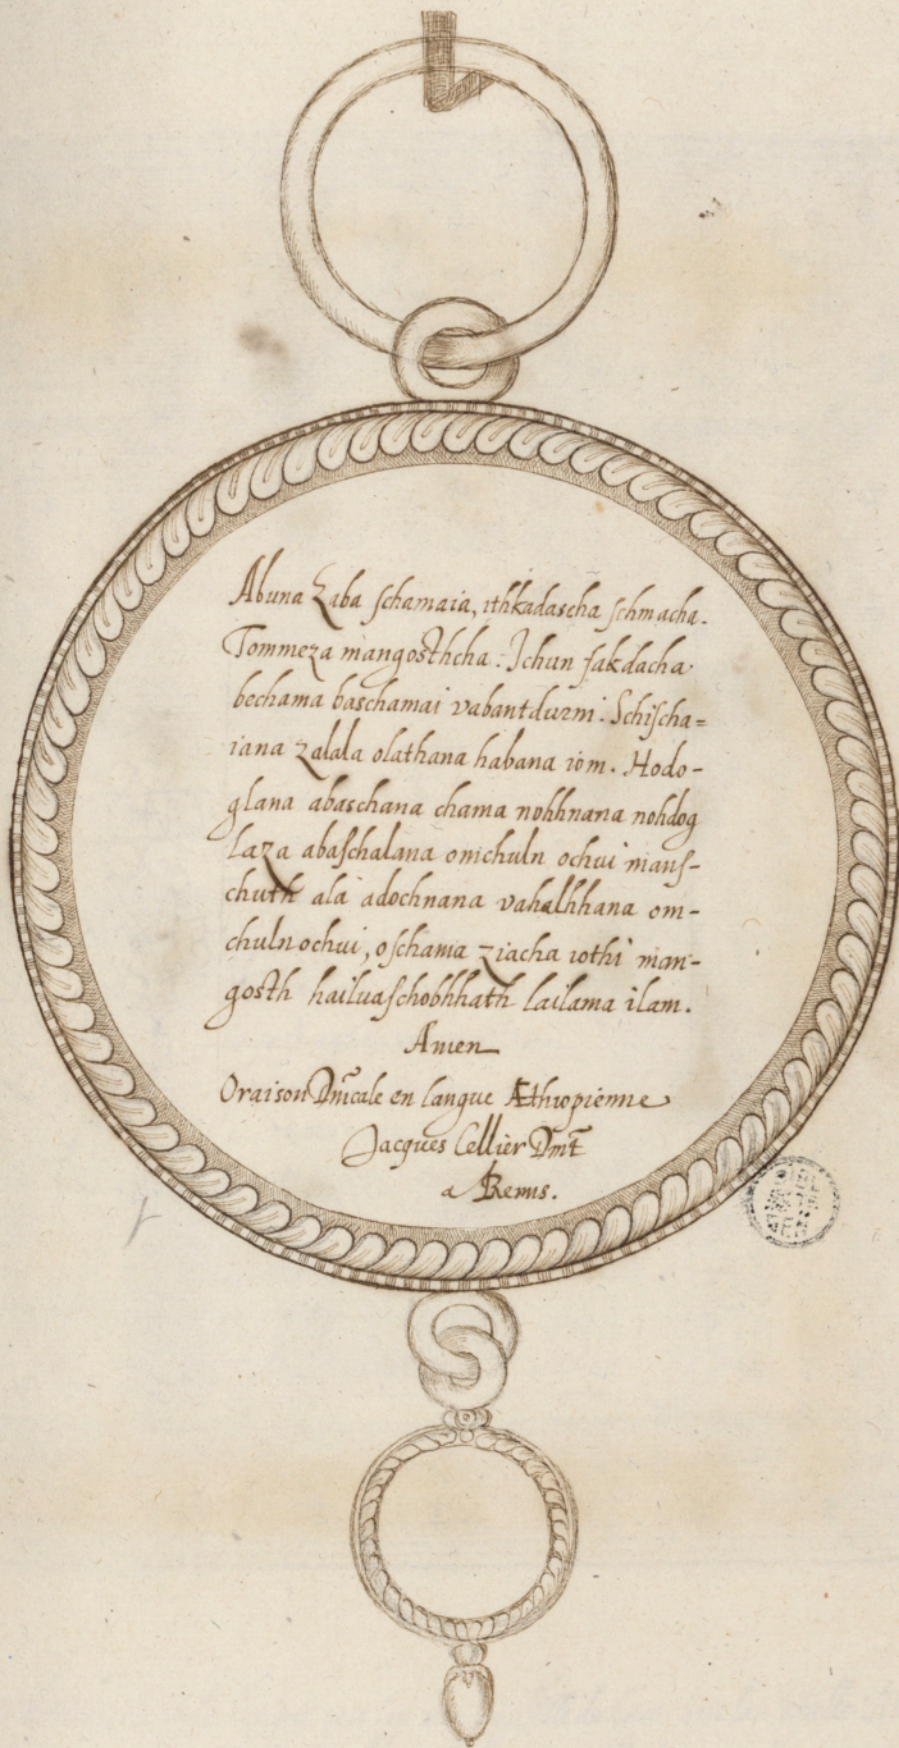 Abuna Zaba schamaia, ithkadascha schmacha.
Tommeza mangosthcha. Ichun fakdacha
bechama baschamai vabantdurni. Schischa=
iana zalala olathana habana iom. Hodo-
glana abaschana chama nohhnana nohdog
laza abaschalana omchuln ochui mans-
chuth ala adochnana vahalhhana om-
chuln ochui, oschama ziacha iothi man-
gosth hailuaschobhhath lailama ilam.
Amen
Oraison Dn̄icale en langue Æthiopienne
Jacques Cellier Dmt̄
a Reims.